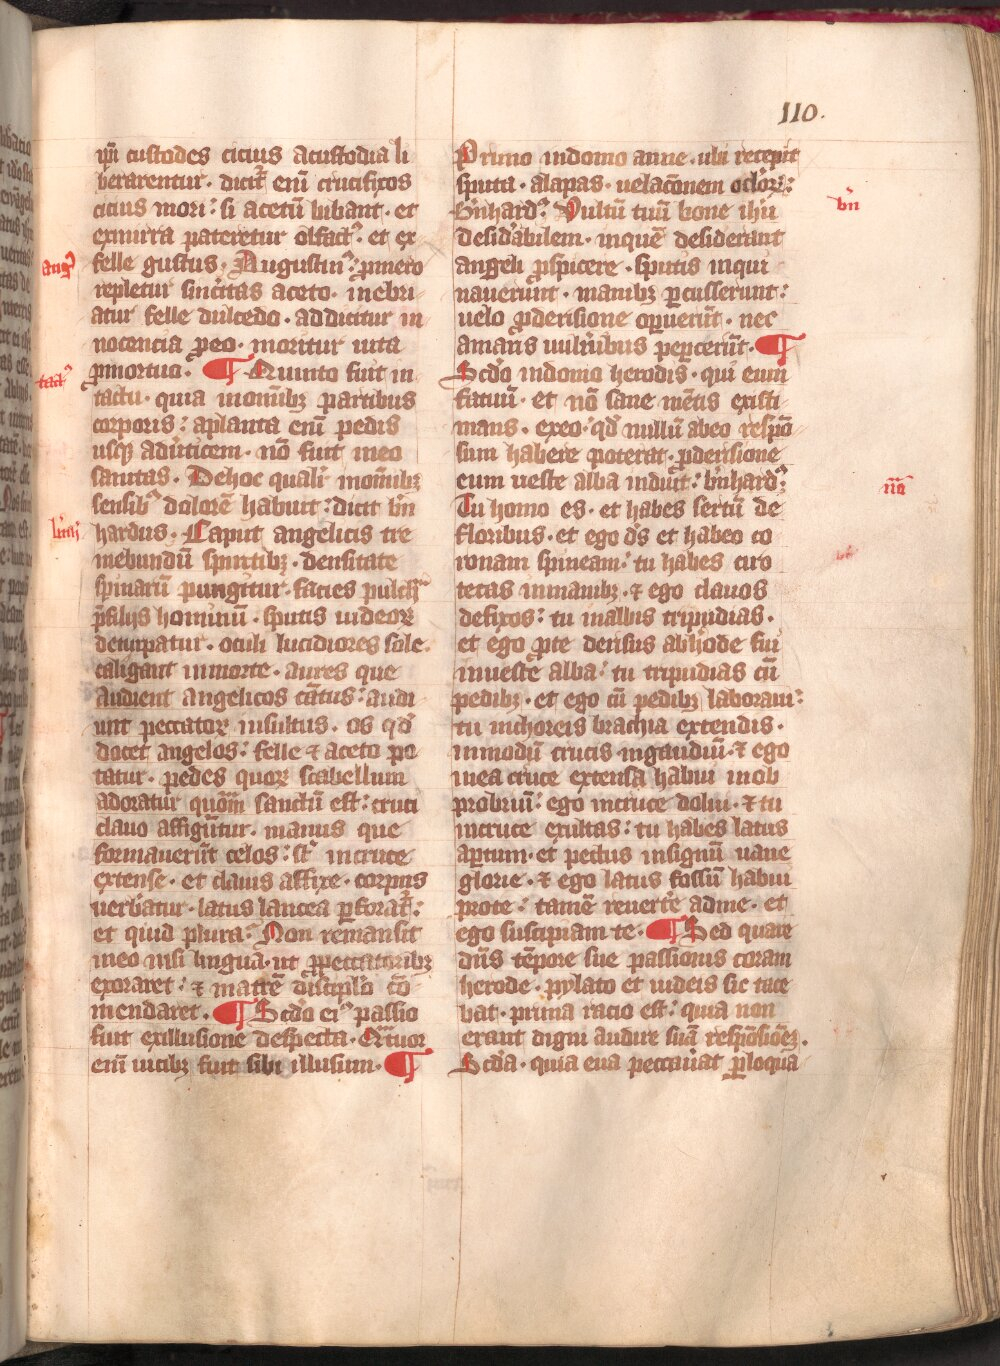 110.
ip̄i custodes cicius acustodia li
berarentur. dicit᷒ enī crucifixos
cicius mori: si acetū bibant. et
exmirra pateretur olfact᷒. et ex
felle gustus. Augustin᷒: pmero
repletur sinceritas aceto. inebri
atur felle dulcedo. addicitur in
nocencia p̱eo. moritur uita
pmortuo. ¶ Quinto fuit in
tactu. quia inomībꝫ partibus
corporis: aplanta enī pedis
usqꝫ aduerticem. nō fuit ineo
sanitas. Dehoc quali᷒ inomībꝫ
sensibꝫ dolorē habuit: dicit bn̄
hardus. Caput angelicis tre
mebundū spiritibꝫ. densitate
spinarū pungitur. facies pulch᷒
p̄filijs hominū. sputis iudeoꝝ
deturpatur. oculi lucidiores sole.
caligant inmorte. aures que
audient angelicos cātus: audi
unt peccatoꝝ insultus. os qd̓
docet angelos: felle ⁊ aceto po
tatur. pedes quoꝝ scabellum
adoratur quōm̄ sanctū est: cruci
clauo affigūtur. manus que
formauerūt celos: st᷒ incruce
extense. et clauis affixe. corpus
uerbatur. latus lancea ꝑforat᷒:
et quid plura: Non remansit
ineo nisi lingua. ut p̱peccatoribꝫ
exoraret: ⁊ matrē discipl̓o cō
mendaret. ¶ Scd̓o ei᷒ passio
fuit exillusione despecta. Q᷒tuor
enī uicibꝫ fuit sibi illusum. ¶
Primo indomo anne. ubi recepit
sputa. alapas. uelac̄onem ocl̓oꝝ:
b̓nhard᷒: Vultū tuū bone ih̄u
desid̓abilem. inquē desiderant
angeli p̱spicere. sputis inqui
nauerunt. manibꝫ ꝑcusserunt:
uelo p̱derisione oꝑuerūt. nec
amaris uuln̓ibus peꝑcerūt. ¶
Scd̓o indomo herodis. qui eum
fatuū. et nō sane mētis existi
mans. exeo. qd̓ nullū abeo respō
sum habere poterat. p̱derisione
eum ueste alba induit: b̓nhard᷒:
Tu homo es. et habes sertū de
floribus. et ego d̄s et habeo co
ronam spineam: tu habes ciro
tecas inmanibꝫ. ⁊ ego clauos
defixos: tu inalbis tripudias.
et ego p̱te derisus abh̓ode fui
inueste alba: tu tripudias cū
pedibꝫ. et ego cū pedibꝫ laboraui:
tu inchoreis brachia extendis.
inmodū crucis ingaudiū. ⁊ ego
mea cruce extensa habui inob
probriū: ego incruce dolui. ⁊ tu
incruce exultas: tu habes latus
aꝑtum. et pectus insignū uane
glorie. ⁊ ego latus fossū habui
prote: tamē reuert̓e adme. et
ego suscipiam te. ¶ Sed quare
dn̄s tēpore sue passionis coram
herode. pylato et iudeis sic tace
bat. prima racio est: quia non
erant digni audire suā respōsiōeꝫ.
Scd̓a. quia eua peccauāt ꝑloqua
aug᷒
tact᷒
bn̄